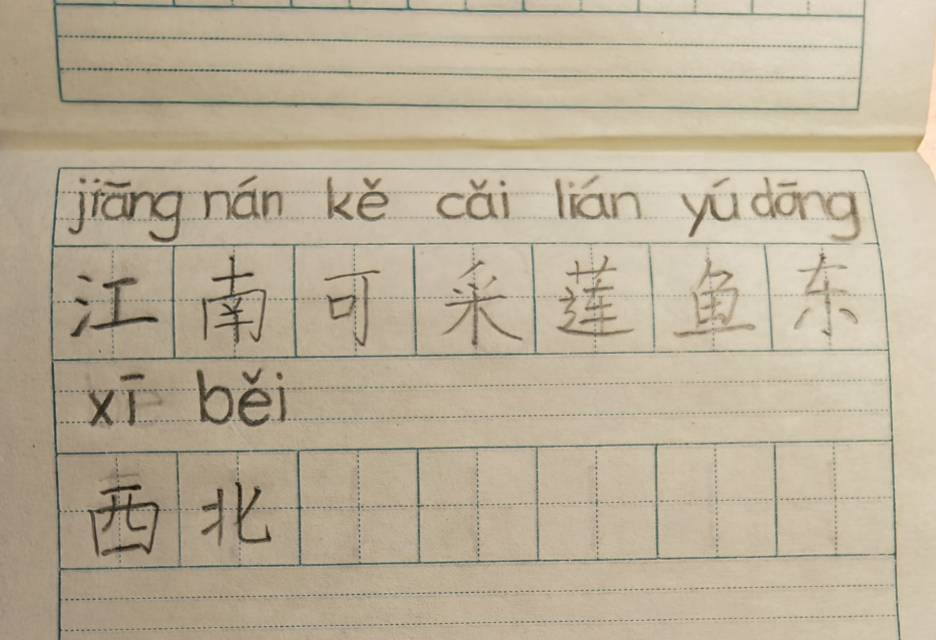 jiāng nán kě cǎi lián yú dōng
江南可采莲鱼东
xī běi
西北